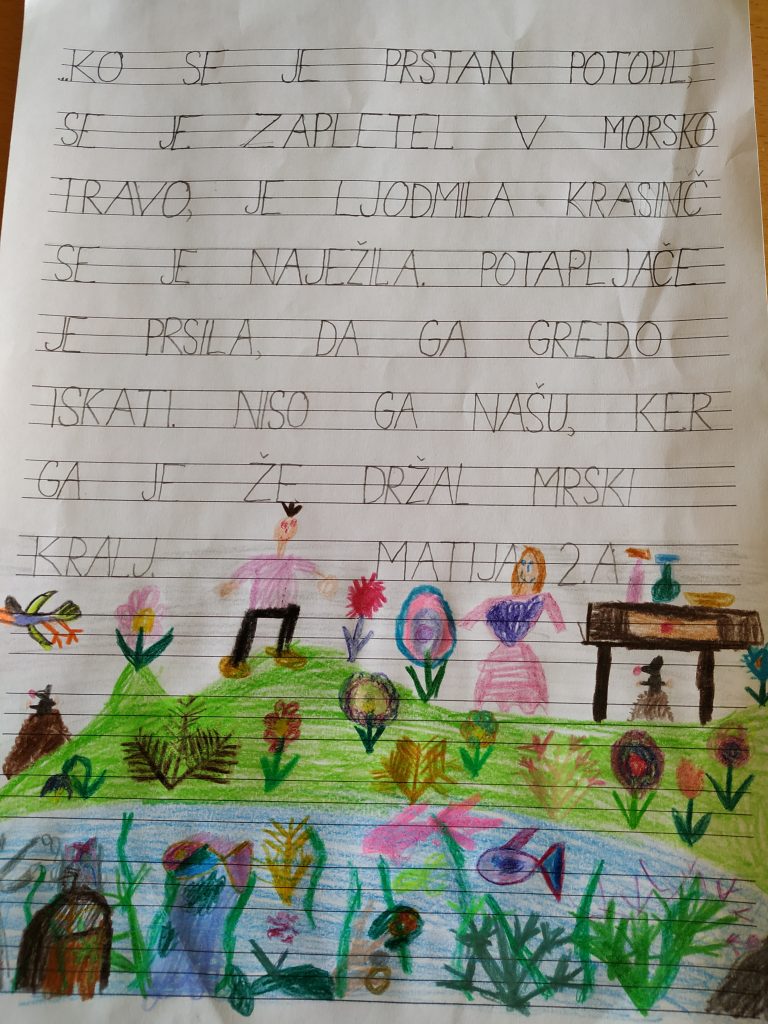 ...KO SE JE PRSTAN POTOPIL,
SE JE ZAPLETEL V MORSKO
TRAVO, JE LJODMILA KRASINČ
SE JE NAJEŽILA. POTAPLJAČE
JE PRSILA, DA GA GREDO
ISKATI. NISO GA NAŠU, KER
GA JE ŽE DRŽAL MRSKI
KRALJ. MATIJA 2.A